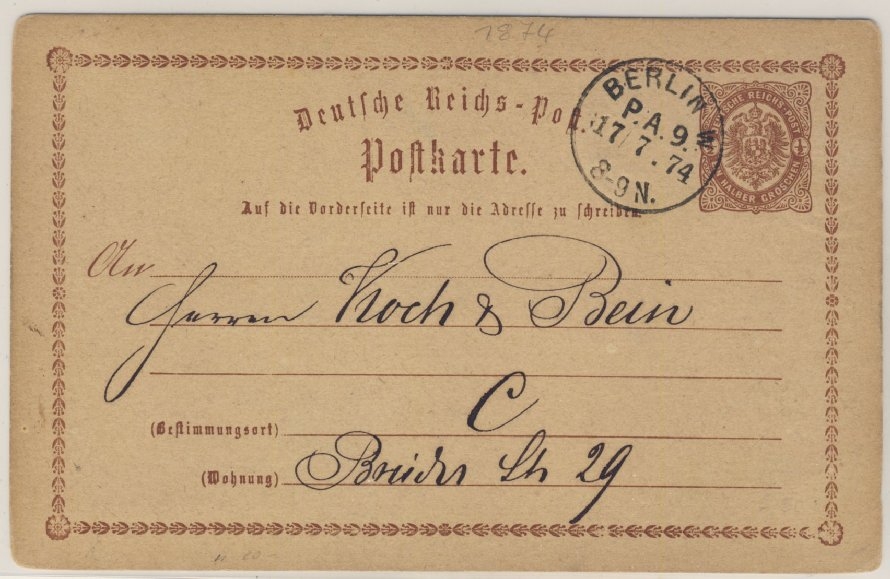 1874
Deutsche Reichs-Post.
Postkarte.
Auf die Vorderseite ist nur die Adresse zu schreiben.
BERLIN W.
P.A.9.
17/7.74
8-9 N.
DEUTSCHE REICHS-POST
EIN HALBER GROSCHEN
An
Herren Koch & Bein
C
(Bestimmungsort)
(Wohnung) Brüder Str 29